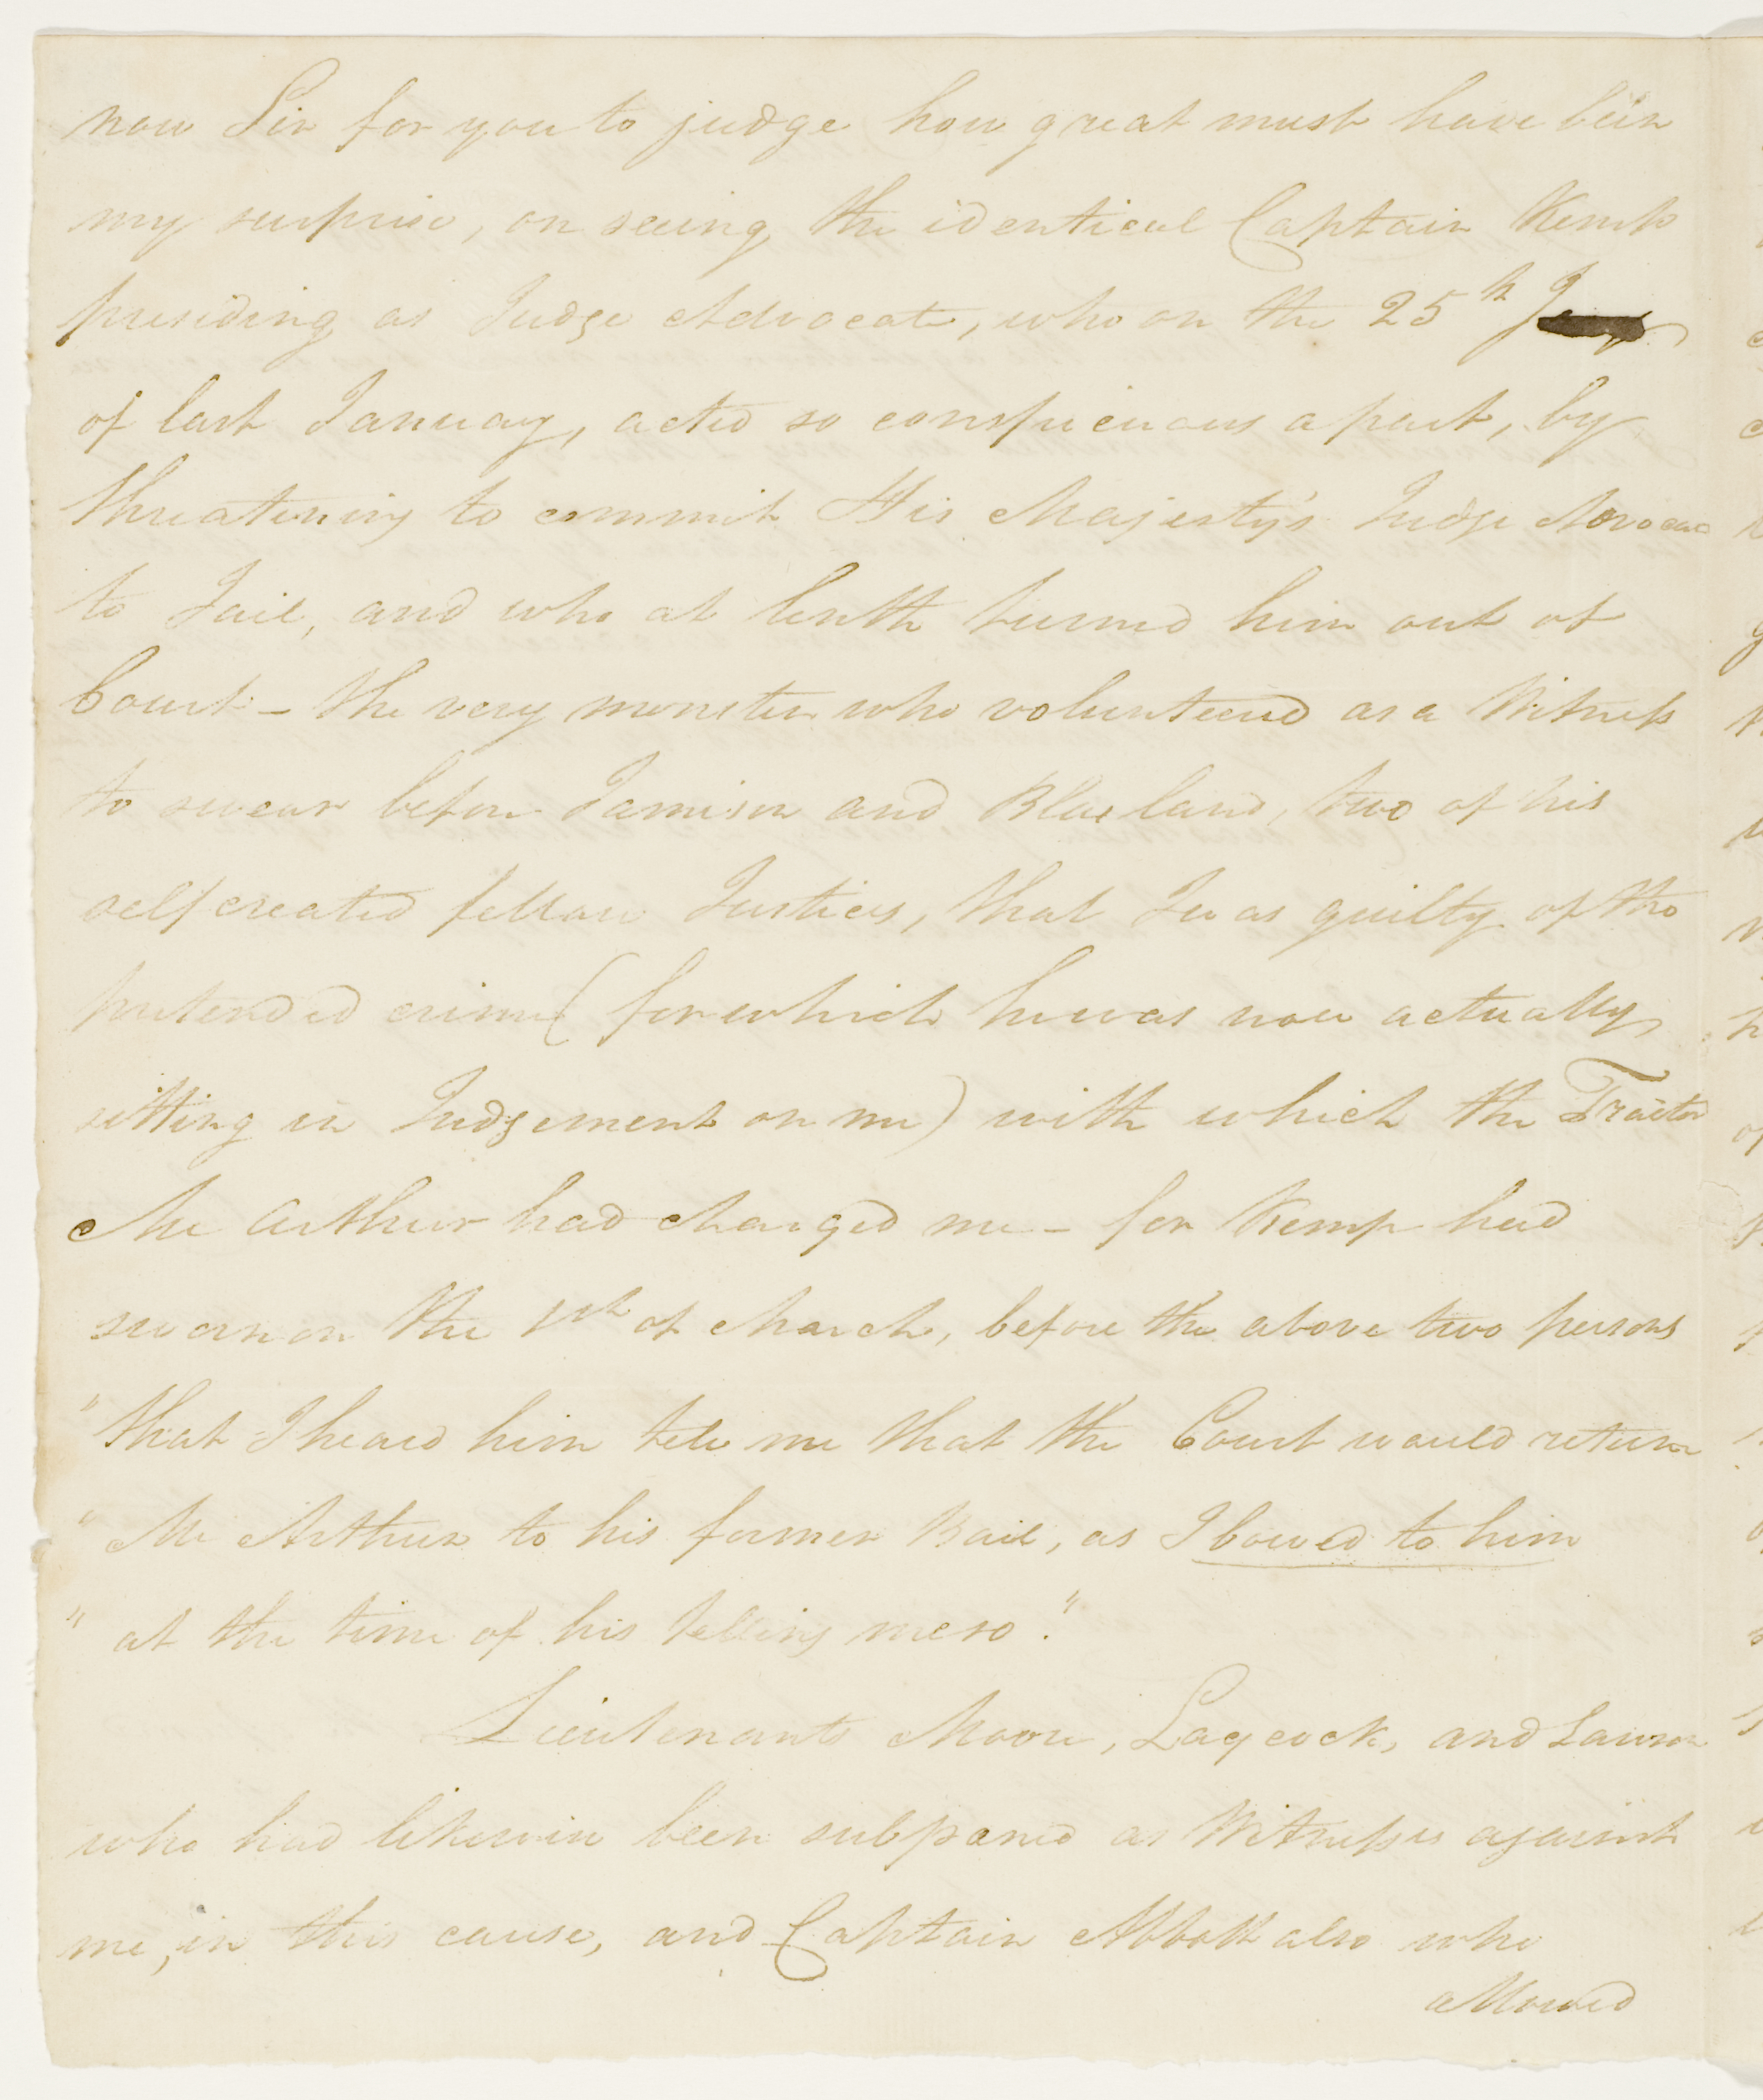 now Sir for you to judge how great must have been
my surprise, on seeing the identical Captain Kemp
presiding as Judge Advocate, who on the 25th
of last January, acted so conspicuous a part, by
threatening to commit His Majesty's Judge Advocate
to Jail, and who at lenth turned him out of
Court - the very monster who volunteered as a Witness
to swear before Jamison and Blaxland, two of his
self created fellow Justices, that I was guilty of the
pretended crime (for which he was now actually
sitting in Judgement on me) with which the Traitor
Mc Arthur had charged me - for Kemp had
sworn on the 1st of March, before the above two persons
"that I heard him tell me that the Court would return
" Mc Arthur to his former Bail, as I bowed to him
" at the time of his telling me so."
Lieutenants Moore, Laycock, and Lawson
who had likewise been subpoened as Witnesses against
me, in this cause, and Captain Abbott also who
allowed